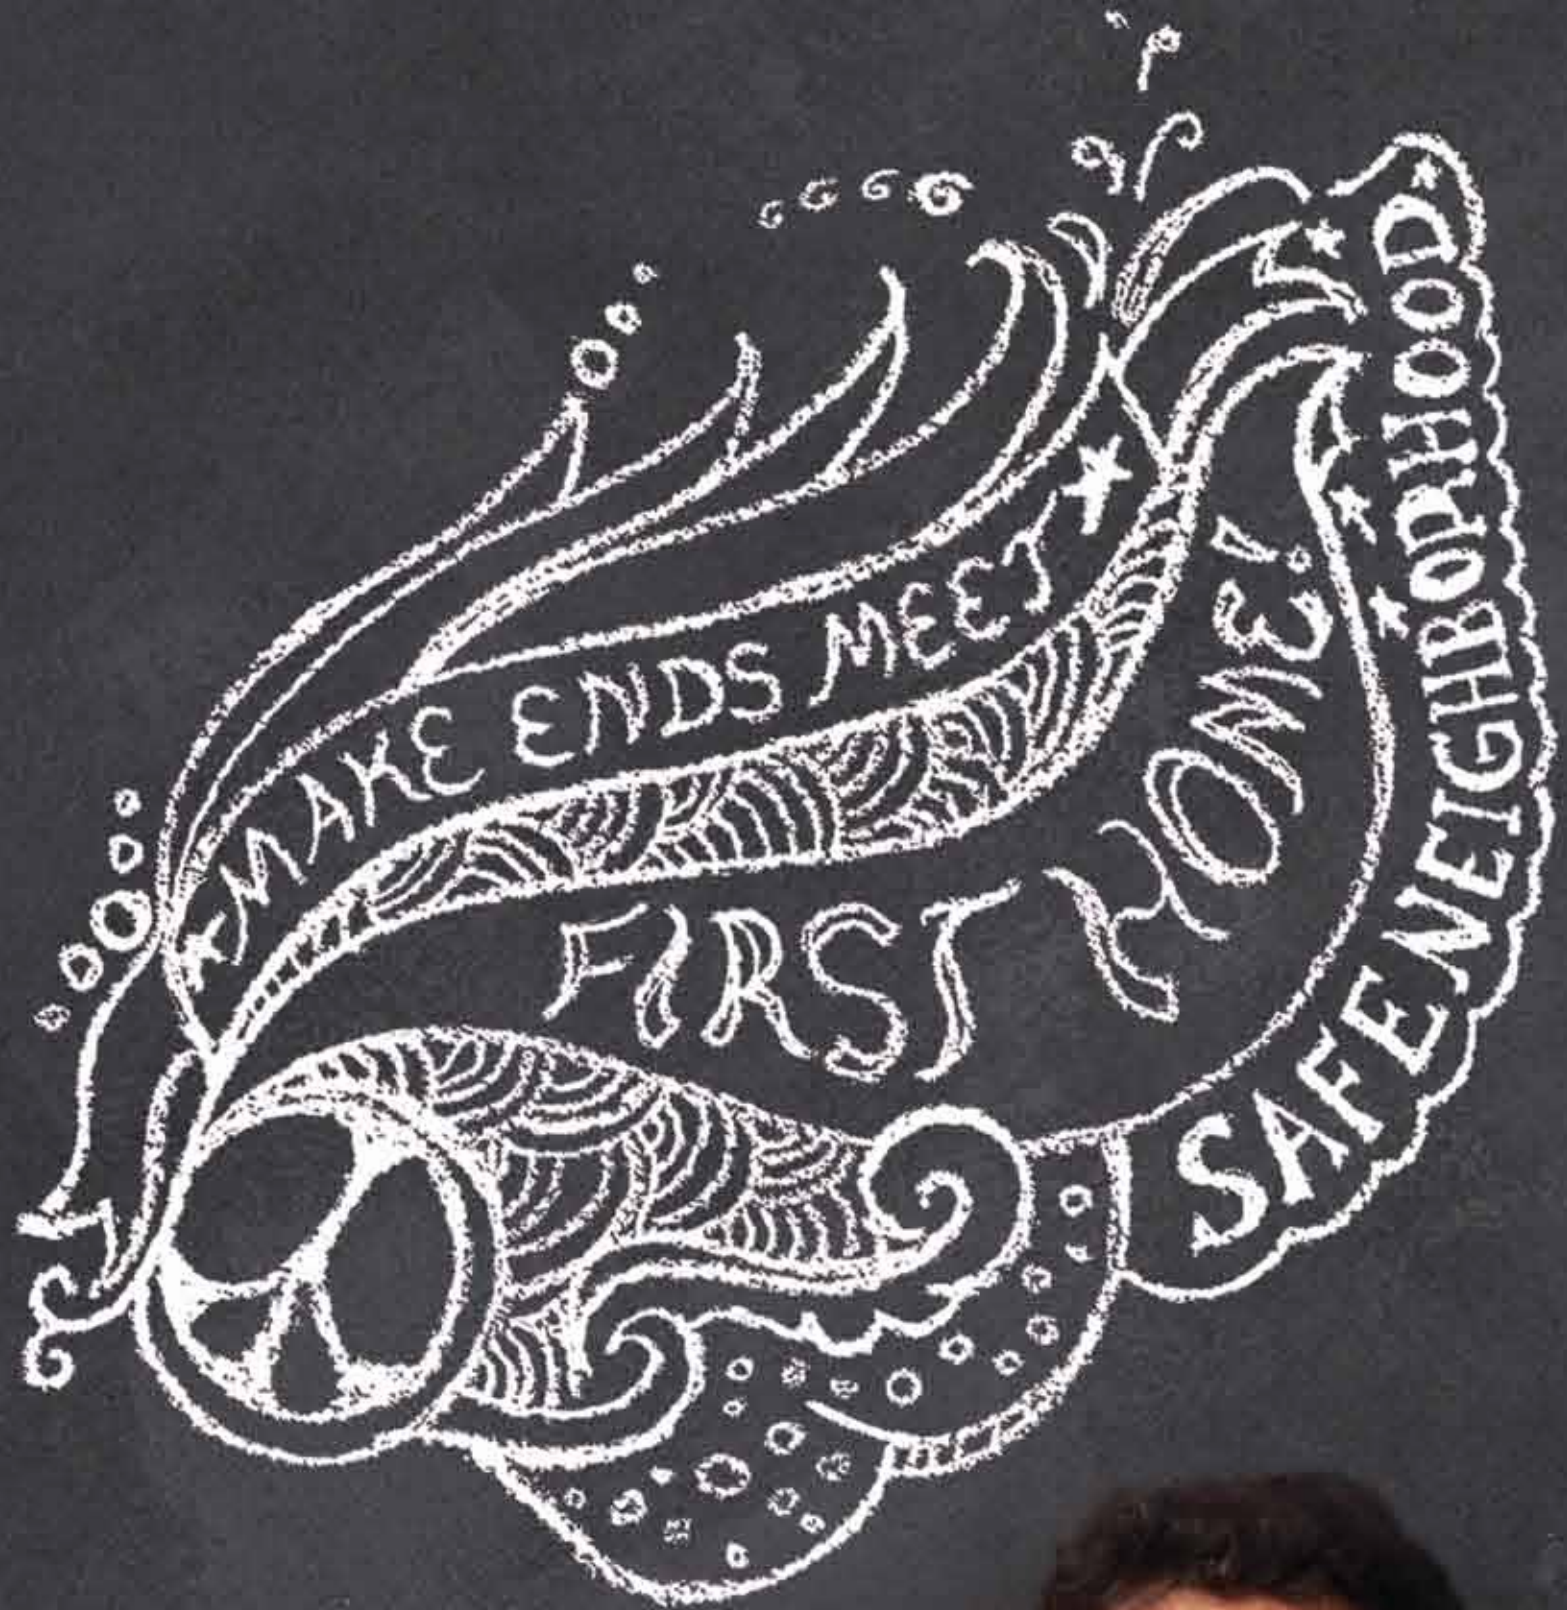 MAKE ENDS MEET
FIRST HOME!
SAFE NEIGHBORHOOD